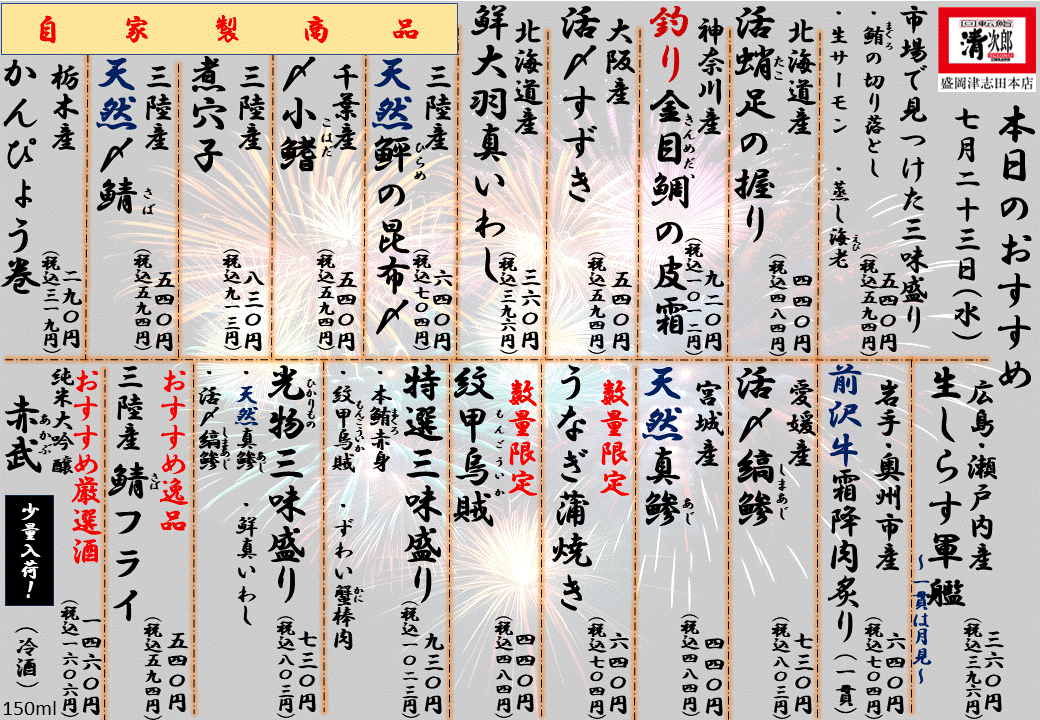 回転鮨
清次郎
盛岡津志田本店
本日のおすすめ
七月二十三日(水)
市場で見つけた三味盛り
・鮪の切り落とし
まぐろ
・生サーモン ・蒸し海老
えび
五四〇円
(税込五九四円)
北海道産
活蛸足の握り
たこ
四四〇円
(税込四八四円)
神奈川産
釣り金目鯛の皮霜
きんめだい
九二〇円
(税込一〇一二円)
大阪産
活〆すずき
五四〇円
(税込五九四円)
北海道産
鮮大羽真いわし
三六〇円
(税込三九六円)
自家製商品
三陸産
天然鮃の昆布〆
ひらめ
六四〇円
(税込七〇四円)
千葉産
〆小鰭
こはだ
五四〇円
(税込五九四円)
三陸産
煮穴子
八三〇円
(税込九一三円)
三陸産
天然〆鯖
さば
五四〇円
(税込五九四円)
栃木産
かんぴょう巻
二九〇円
(税込三一九円)
広島・瀬戸内産
生しらす軍艦
~一貫は月見~
三六〇円
(税込三九六円)
岩手・奥州市産
前沢牛霜降肉炙り(一貫)
六四〇円
(税込七〇四円)
愛媛産
活〆縞鯵
しまあじ
七三〇円
(税込八〇三円)
宮城産
天然真鯵
あじ
四四〇円
(税込四八四円)
数量限定
うなぎ蒲焼き
六四〇円
(税込七〇四円)
数量限定
紋甲烏賊
もんごういか
四四〇円
(税込四八四円)
特選三味盛り
・本鮪赤身
まぐろ
・紋甲烏賊 ・ずわい蟹棒肉
もんごういか
かに
九三〇円
(税込一〇二三円)
光物三味盛り
ひかりもの
・天然真鯵 ・鮮真いわし
あじ
・活〆縞鯵
しまあじ
七三〇円
(税込八〇三円)
おすすめ逸品
三陸産鯖フライ
さば
五四〇円
(税込五九四円)
おすすめ厳選酒
純米大吟醸
赤武
あかぶ
少量入荷!
(冷酒)
一四六〇円
(税込一六〇六円)
150ml